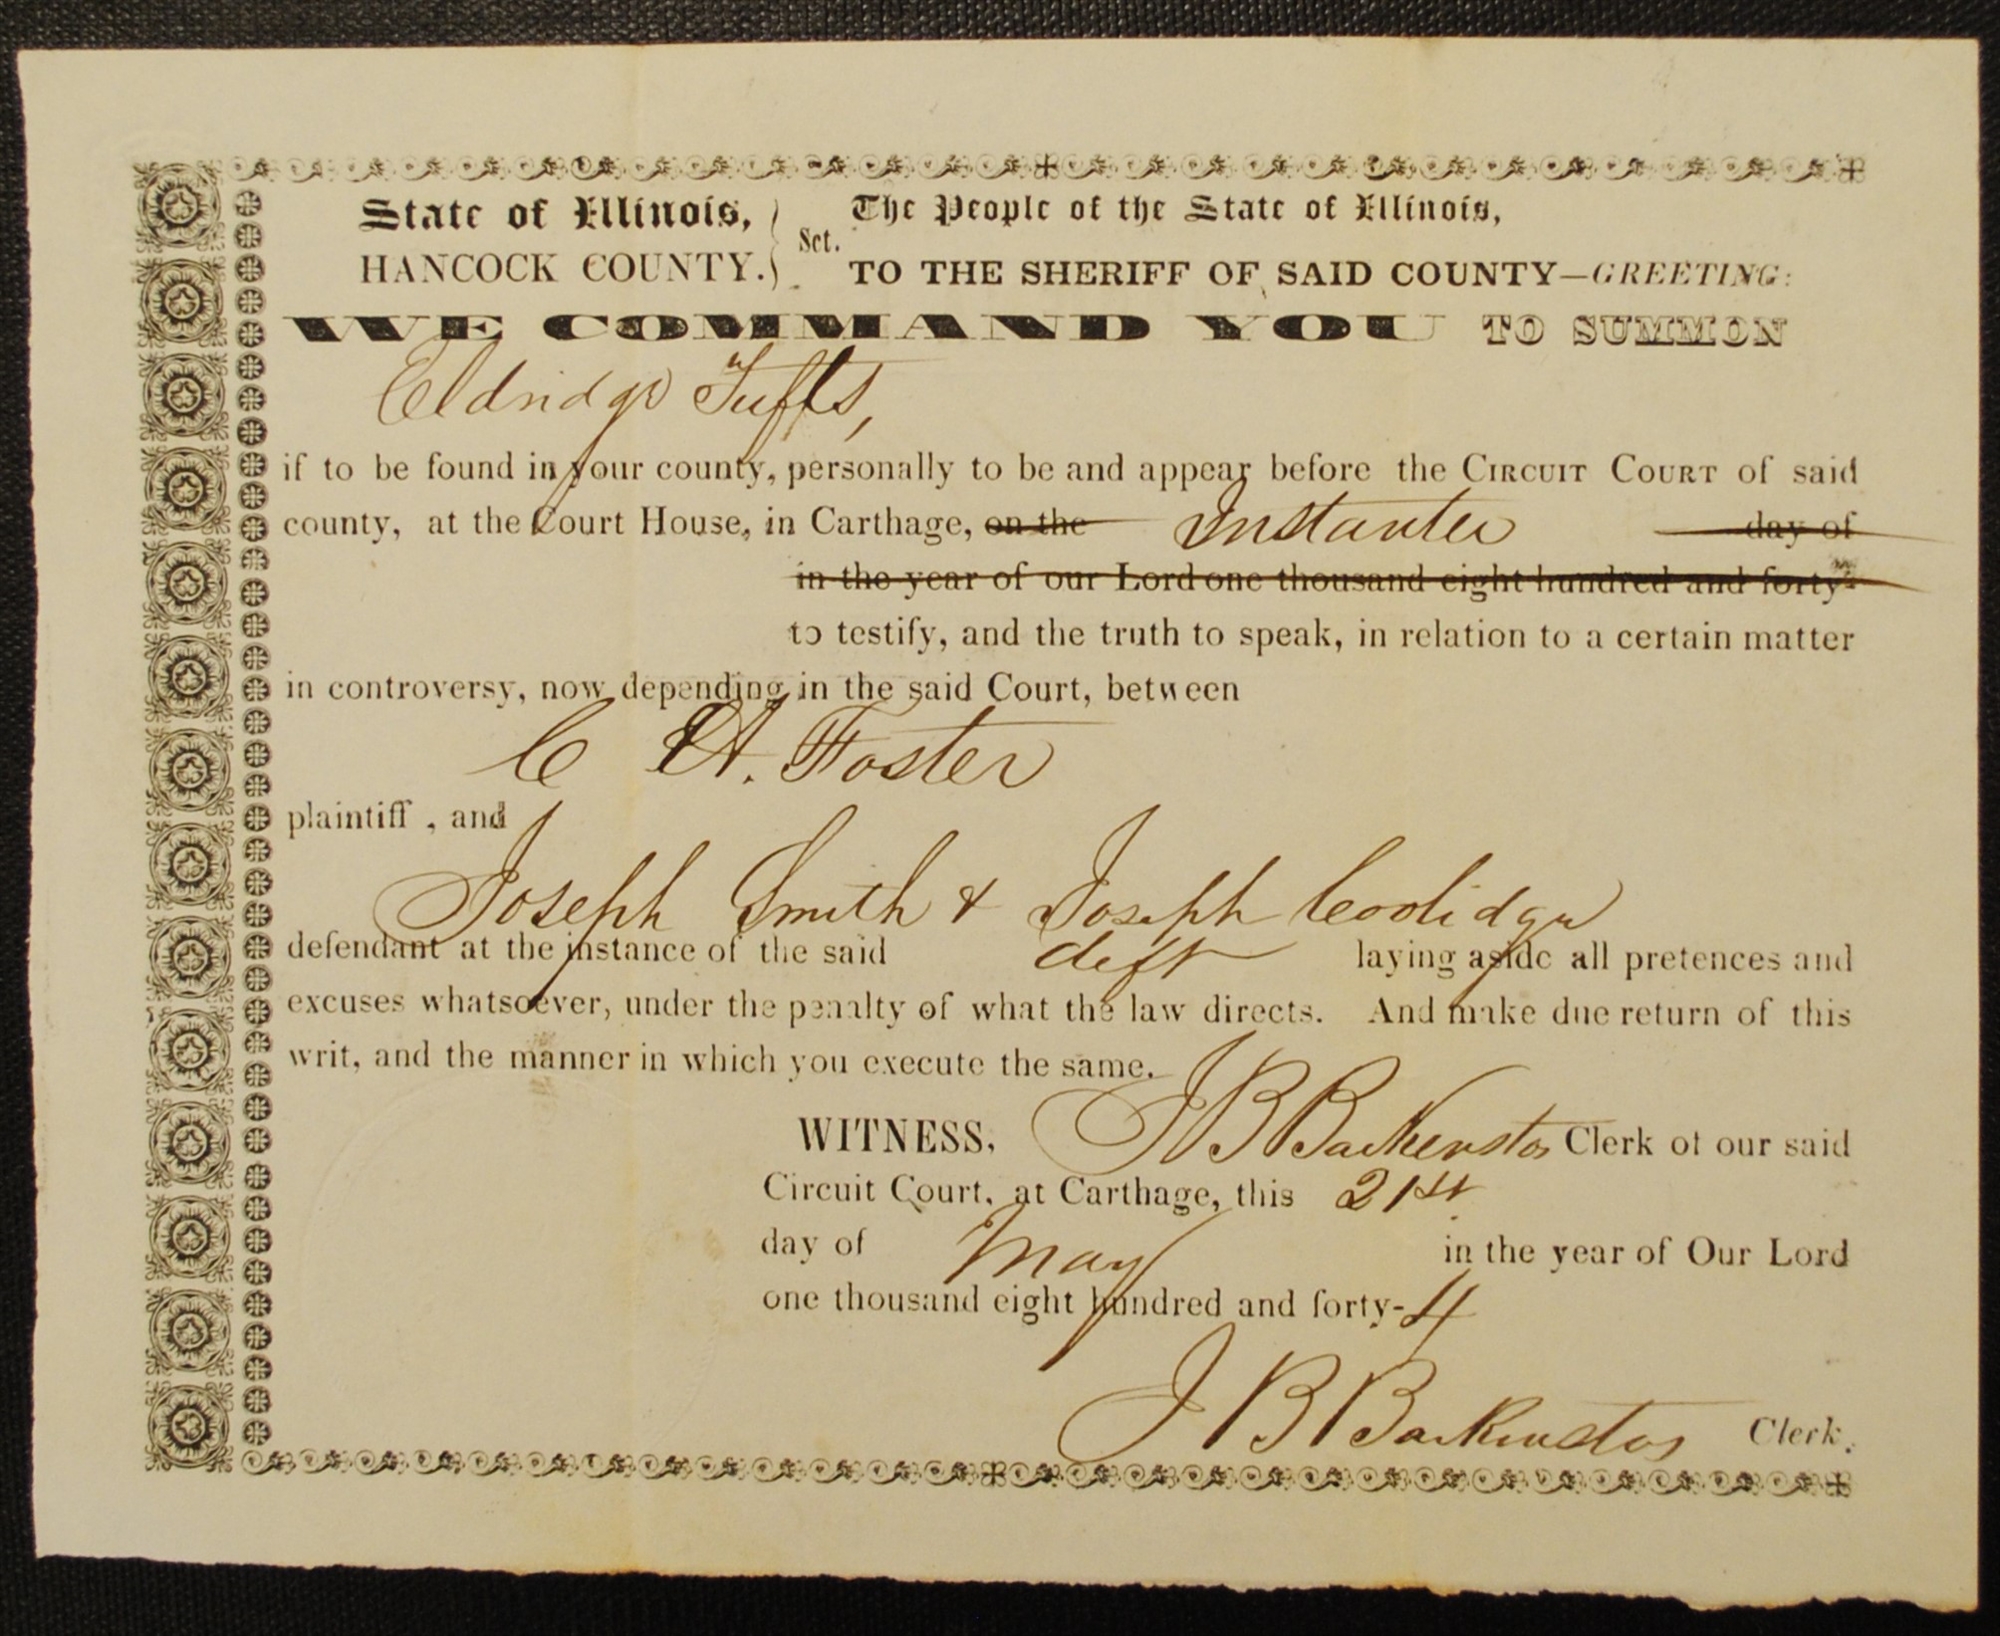 State of Illinois, } Sct. The People of the State of Illinois,
HANCOCK COUNTY. TO THE SHERIFF OF SAID COUNTY—GREETING:
WE COMMAND YOU TO SUMMON
Eldridge Tufts,
if to be found in your county, personally to be and appear before the CIRCUIT COURT of said
county, at the Court House, in Carthage, on the Instanter day of
in the year of our Lord one thousand eight hundred and forty-
to testify, and the truth to speak, in relation to a certain matter
in controversy, now depending in the said Court, between
C A. Foster
plaintiff , and
Joseph Smith & Joseph Coolidge
defendant at the instance of the said deft laying aside all pretences and
excuses whatsoever, under the penalty of what the law directs. And make due return of this
writ, and the manner in which you execute the same.
WITNESS, J B Backenstos Clerk of our said
Circuit Court, at Carthage, this 21st
day of May in the year of Our Lord
one thousand eight hundred and forty-4
J B Backenstos Clerk.